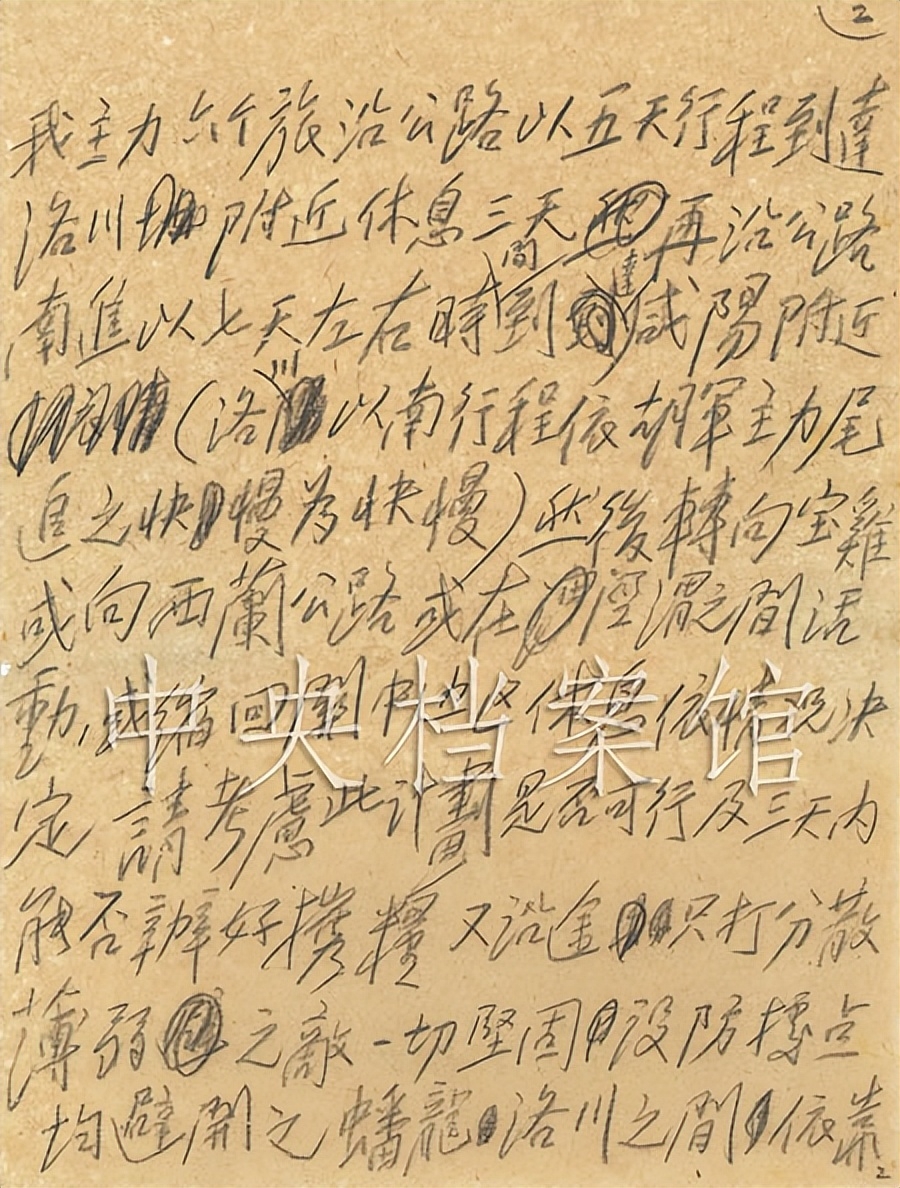 2
我主力六个旅沿公路以五天行程到達
洛川附近休息三天再沿公路
南進以七天左右時間到達咸陽附近
(洛川以南行程依胡軍主力尾
追之快慢為快慢)然後轉向宝雞
或向西蘭公路或在涇渭之間活
動,或縮回關中地区休息依情况决
定 請考慮此計劃是否可行及三天内
能否辦好携糧 又沿途只打分散
薄弱之敵一切堅固設防據点
均避開之蟠龍洛川之間依靠
2
中央档案馆